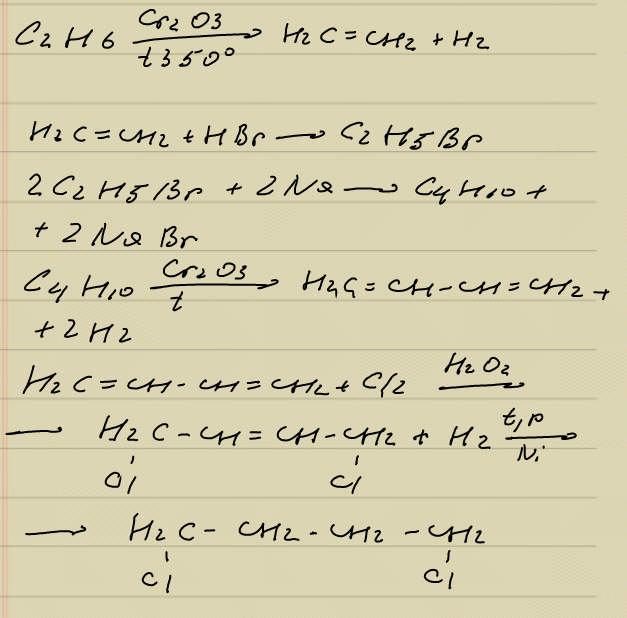 C2H6 Cr2O3 t 350° → H2C=CH2 + H2
H2C=CH2 + HBr → C2H5Br
2C2H5Br + 2Na → C4H10 +
+ 2NaBr
C4H10 Cr2O3 t → H2C=CH-CH=CH2 +
+ 2H2
H2C=CH-CH=CH2 + Cl2 H2O2
→ H2C-CH=CH-CH2 + H2 t,p Ni →
Cl Cl
→ H2C-CH2-CH2-CH2
Cl Cl